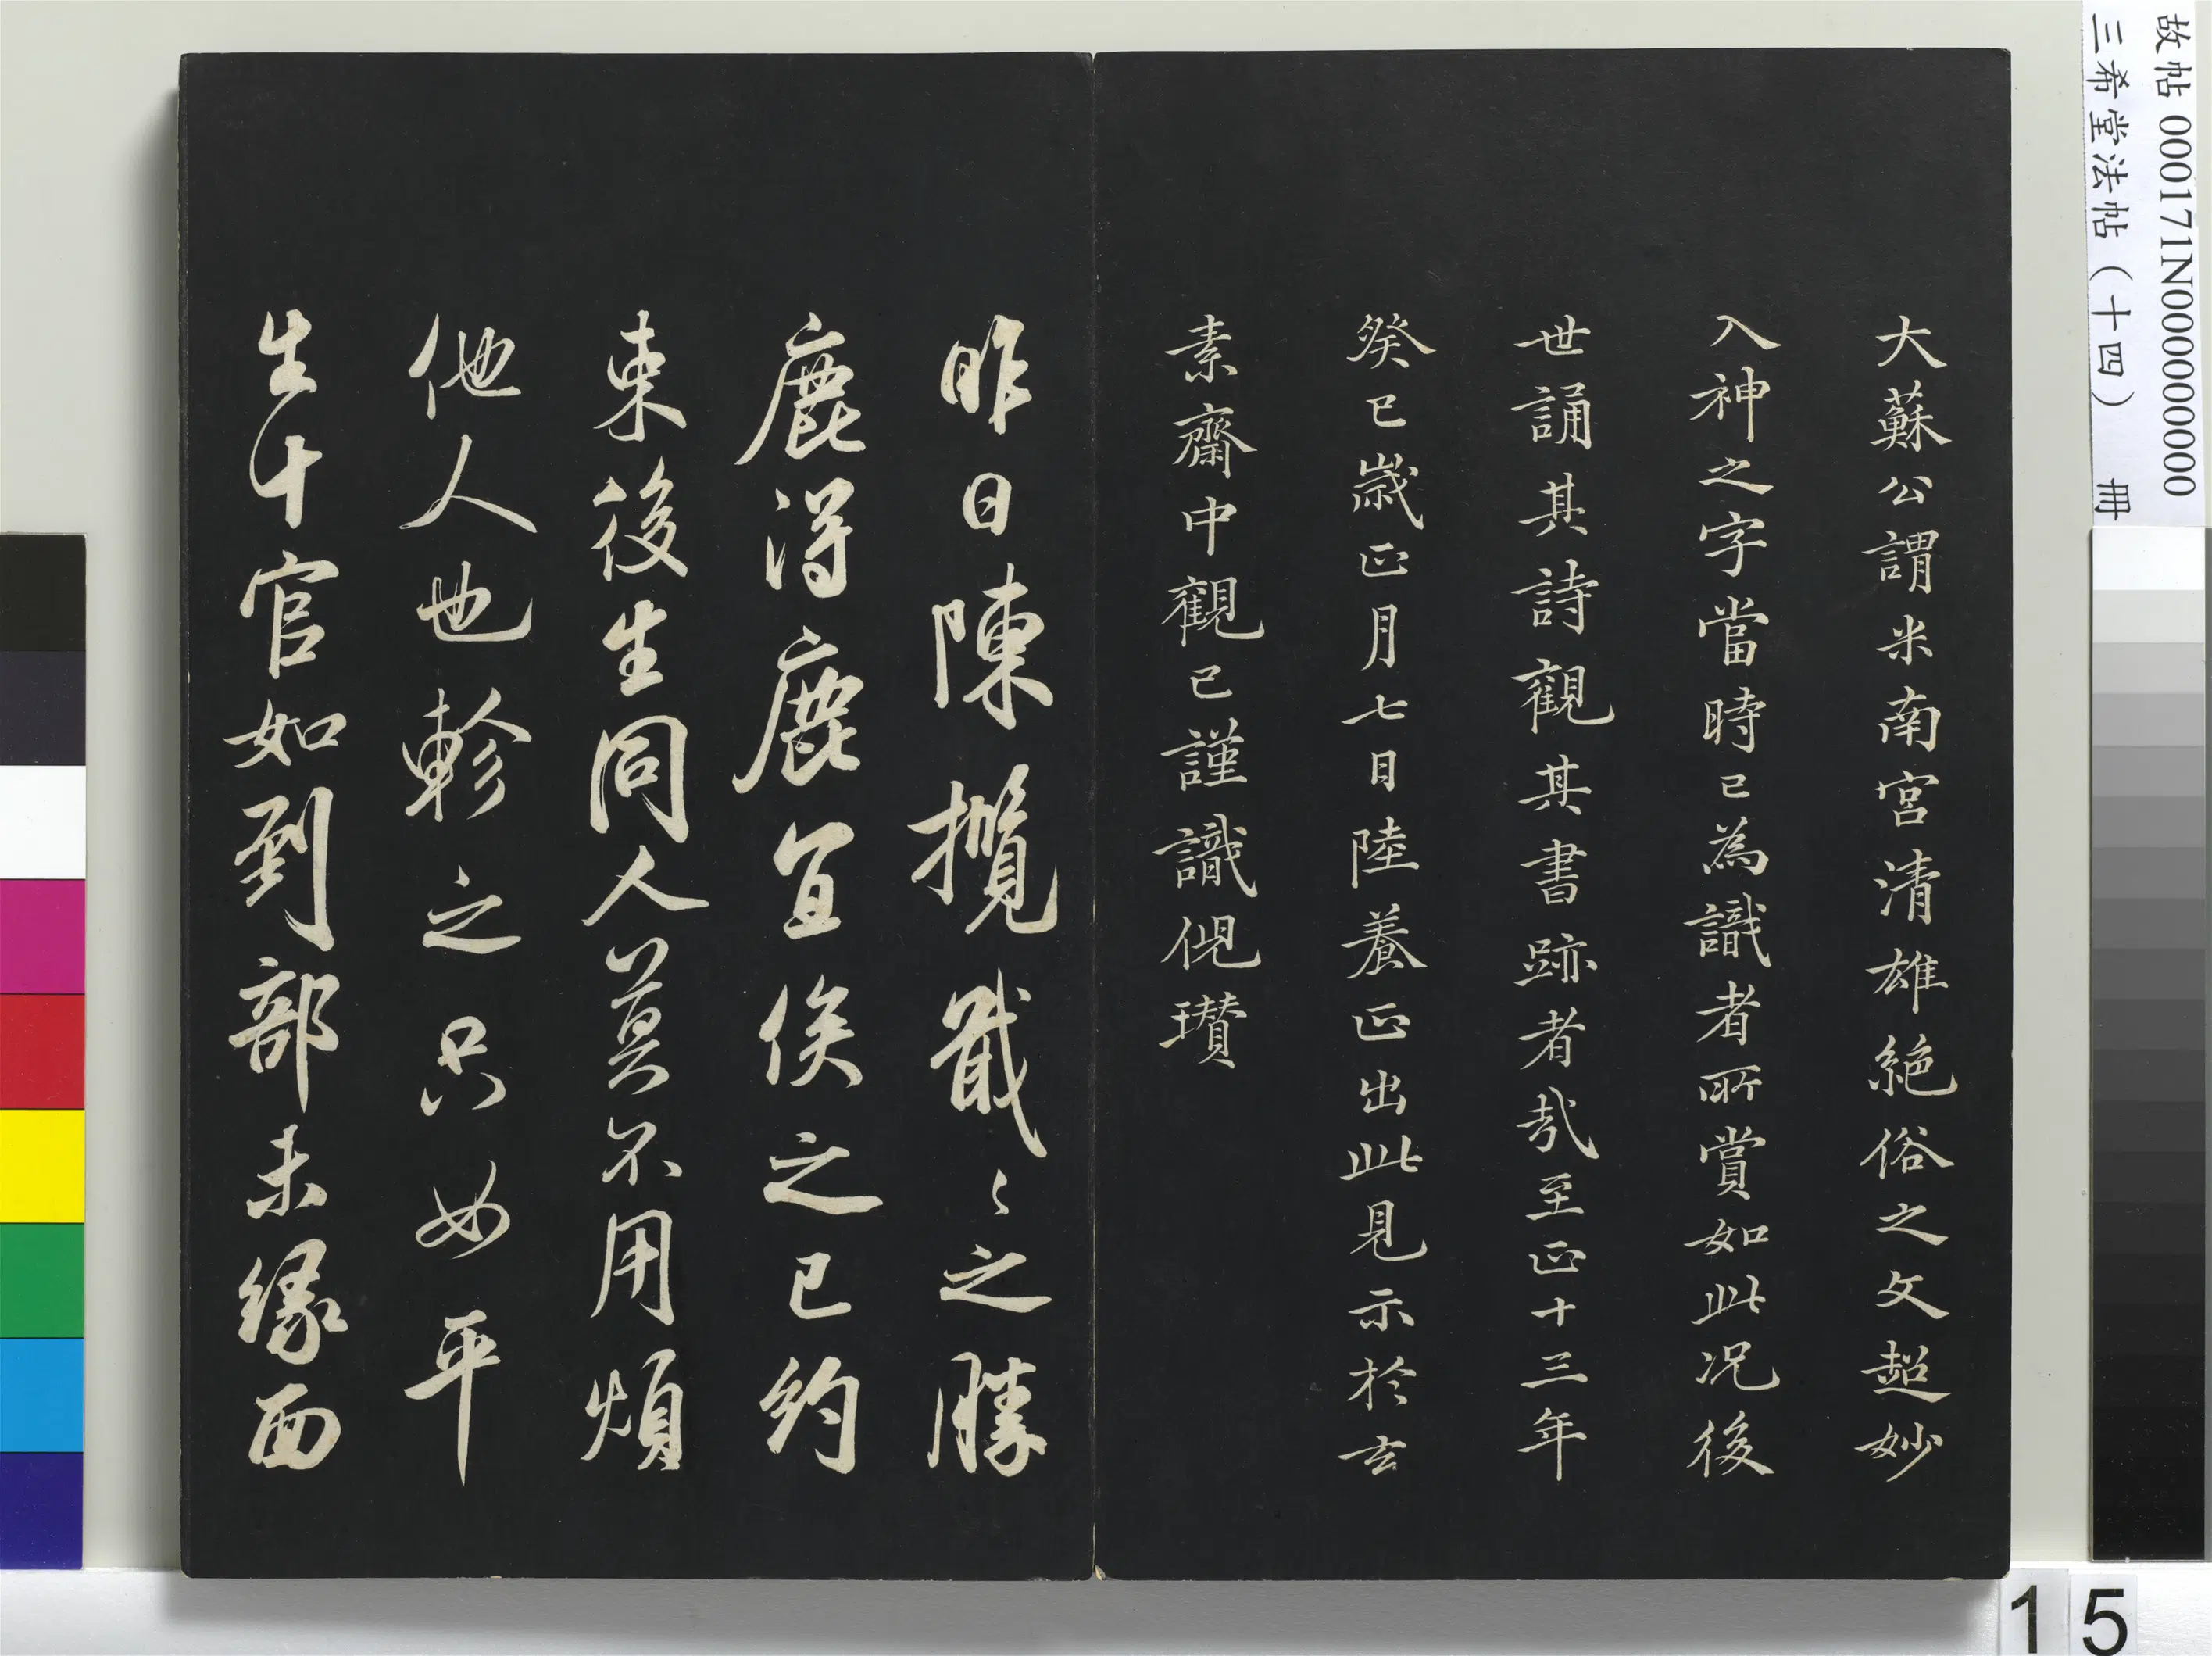 故帖 000171N000000000
三希堂法帖（十四） 冊
大蘇公謂米南宮清雄絕俗之文超妙
入神之字當時已為識者所賞如此況後
世誦其詩觀其書跡者哉至正十三年
癸巳歲正月七日陸養正出此見示於玄
素齋中觀已謹識倪瓚
昨日陳攬戢〻之勝
鹿得鹿宜俟之已約
束後生同人莫不用煩
他人也軫之只如平
生十官如到部未緣面
15